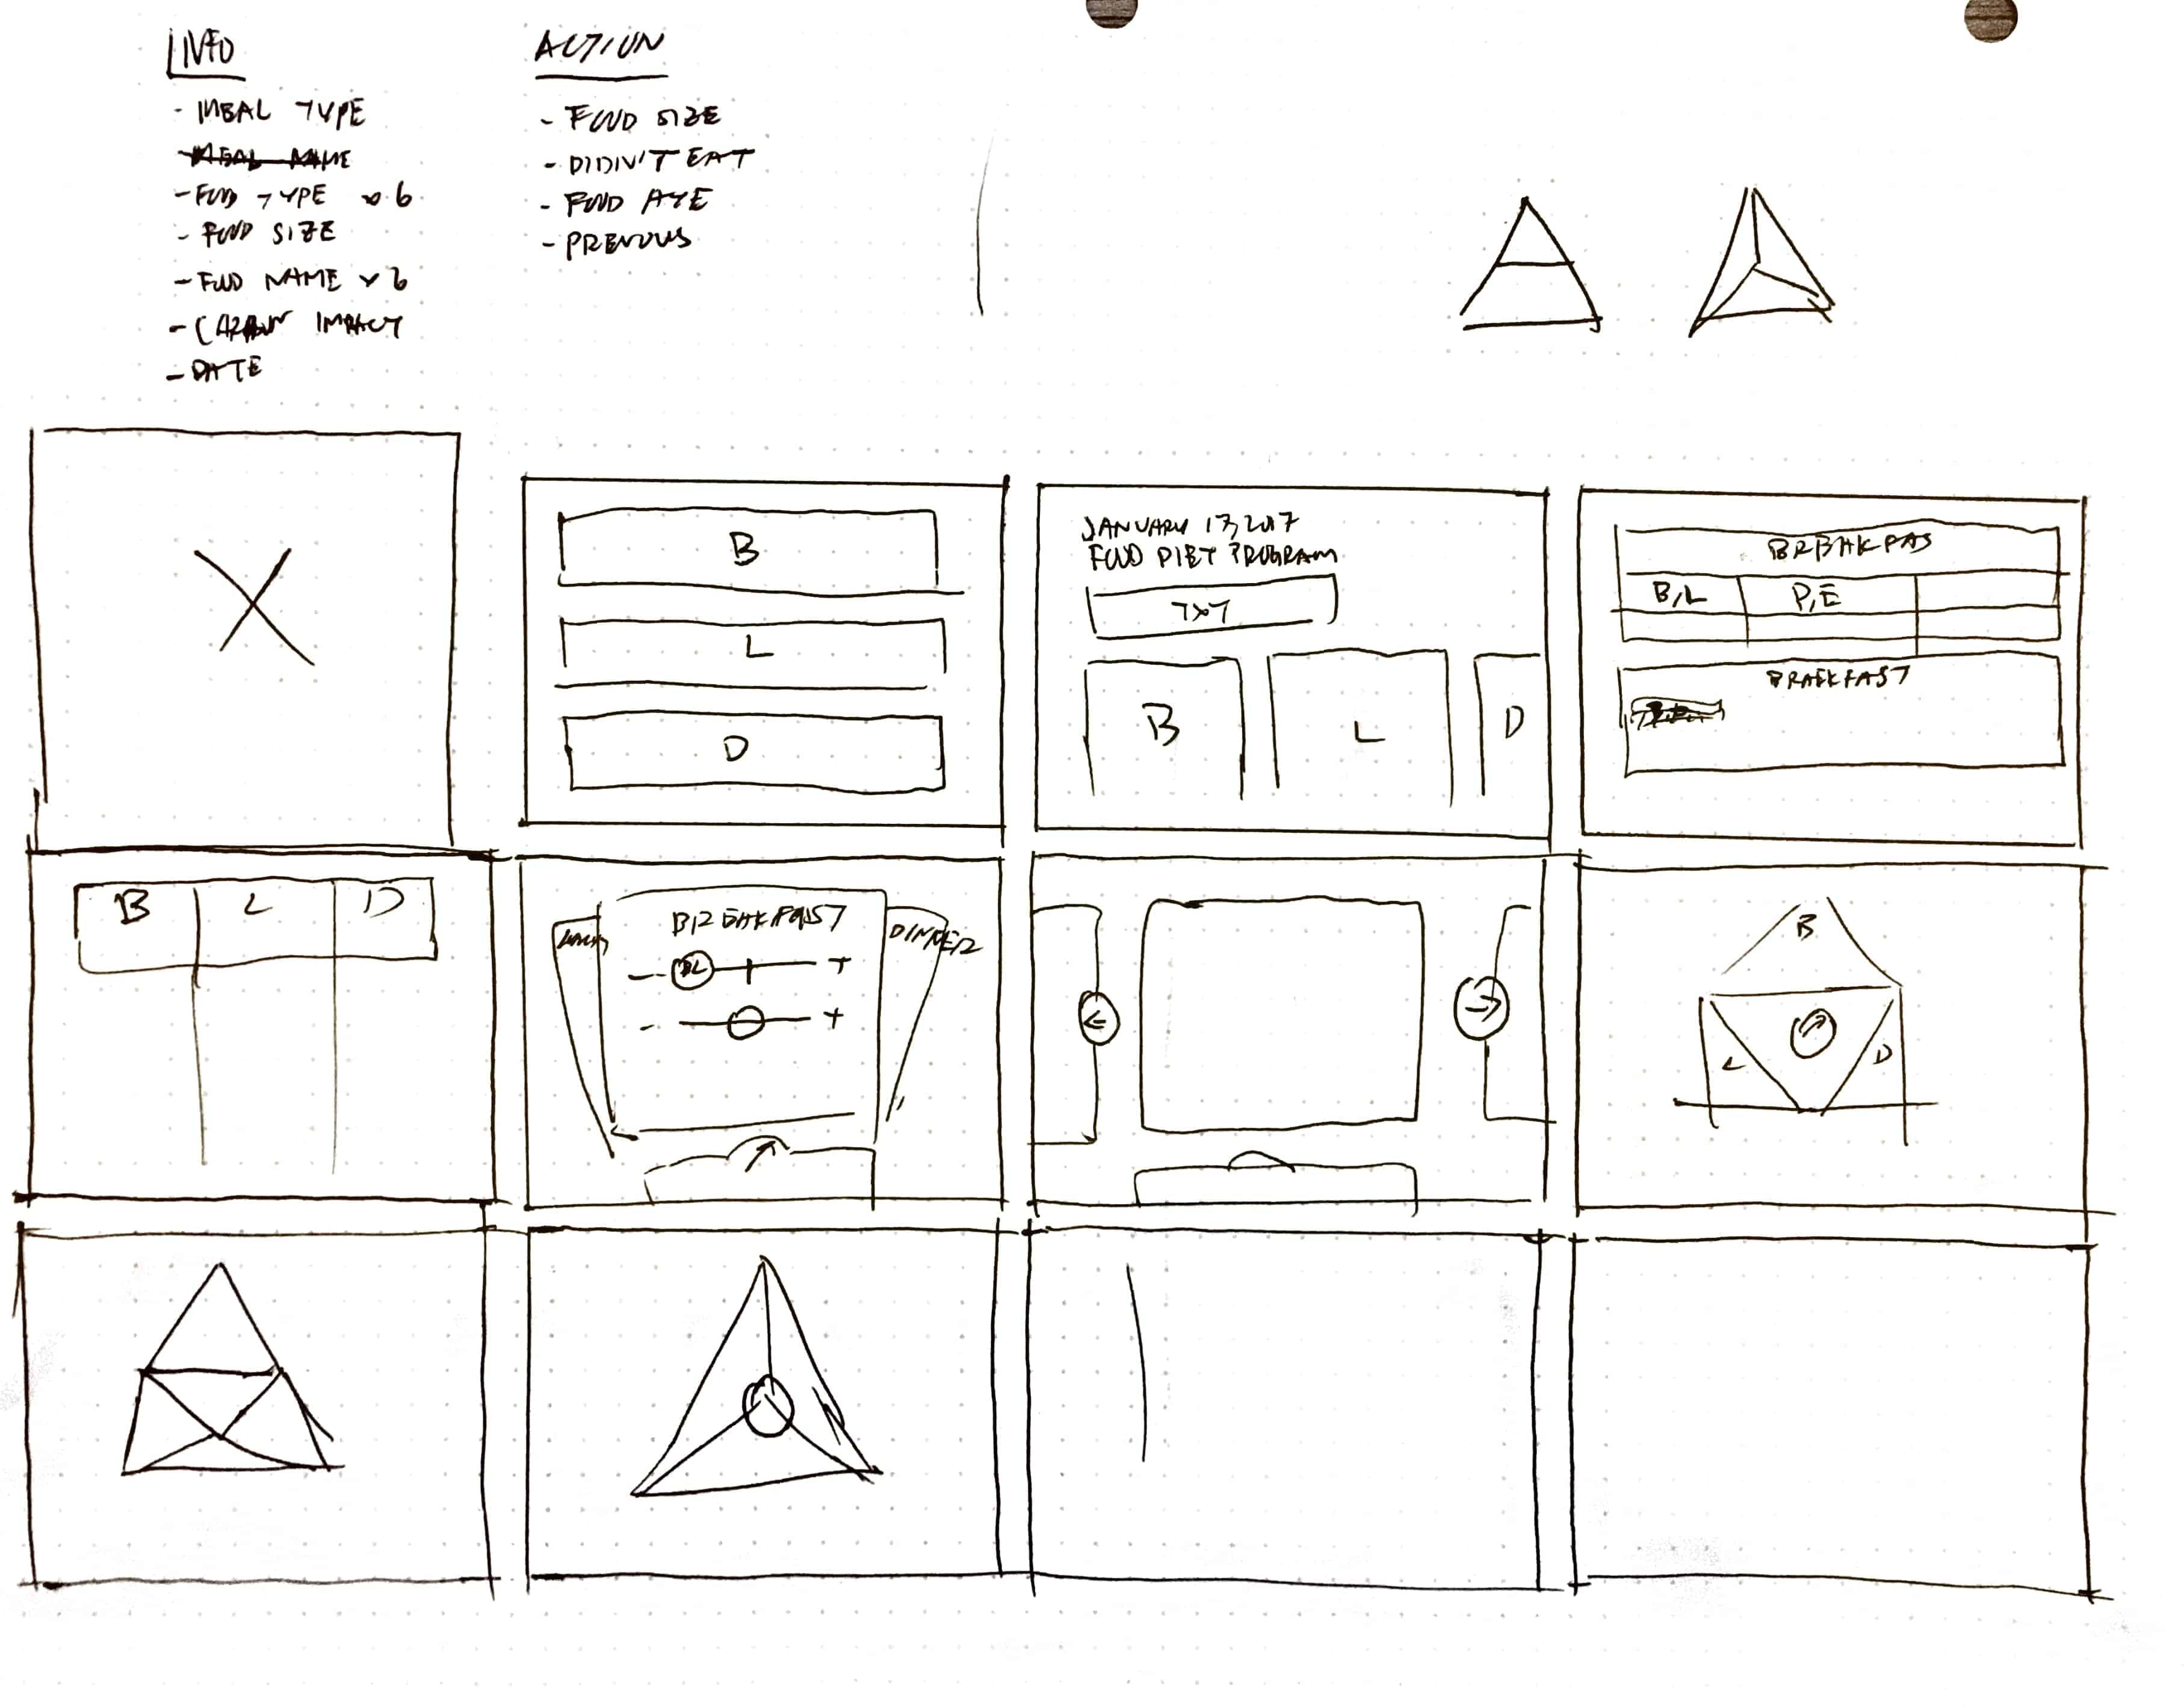 INFO
- MEAL TYPE
- MEAL NAME
- FOOD TYPE x 6
- FOOD SIZE
- FOOD NAME x 6
- CARBON IMPACT
- DATE
ACTION
- FOOD SIZE
- DIDIN'T EAT
- FOOD AYE
- PREVIOUS
B
L
D
JANUARY 17, 2017
FOOD DIET PROGRAM
TXT
B
L
D
BREAKFAS
B/L
P/E
BRAEKFAST
B
L
D
BREAKFAST
DINNER
-
+
-
+
B
L
D